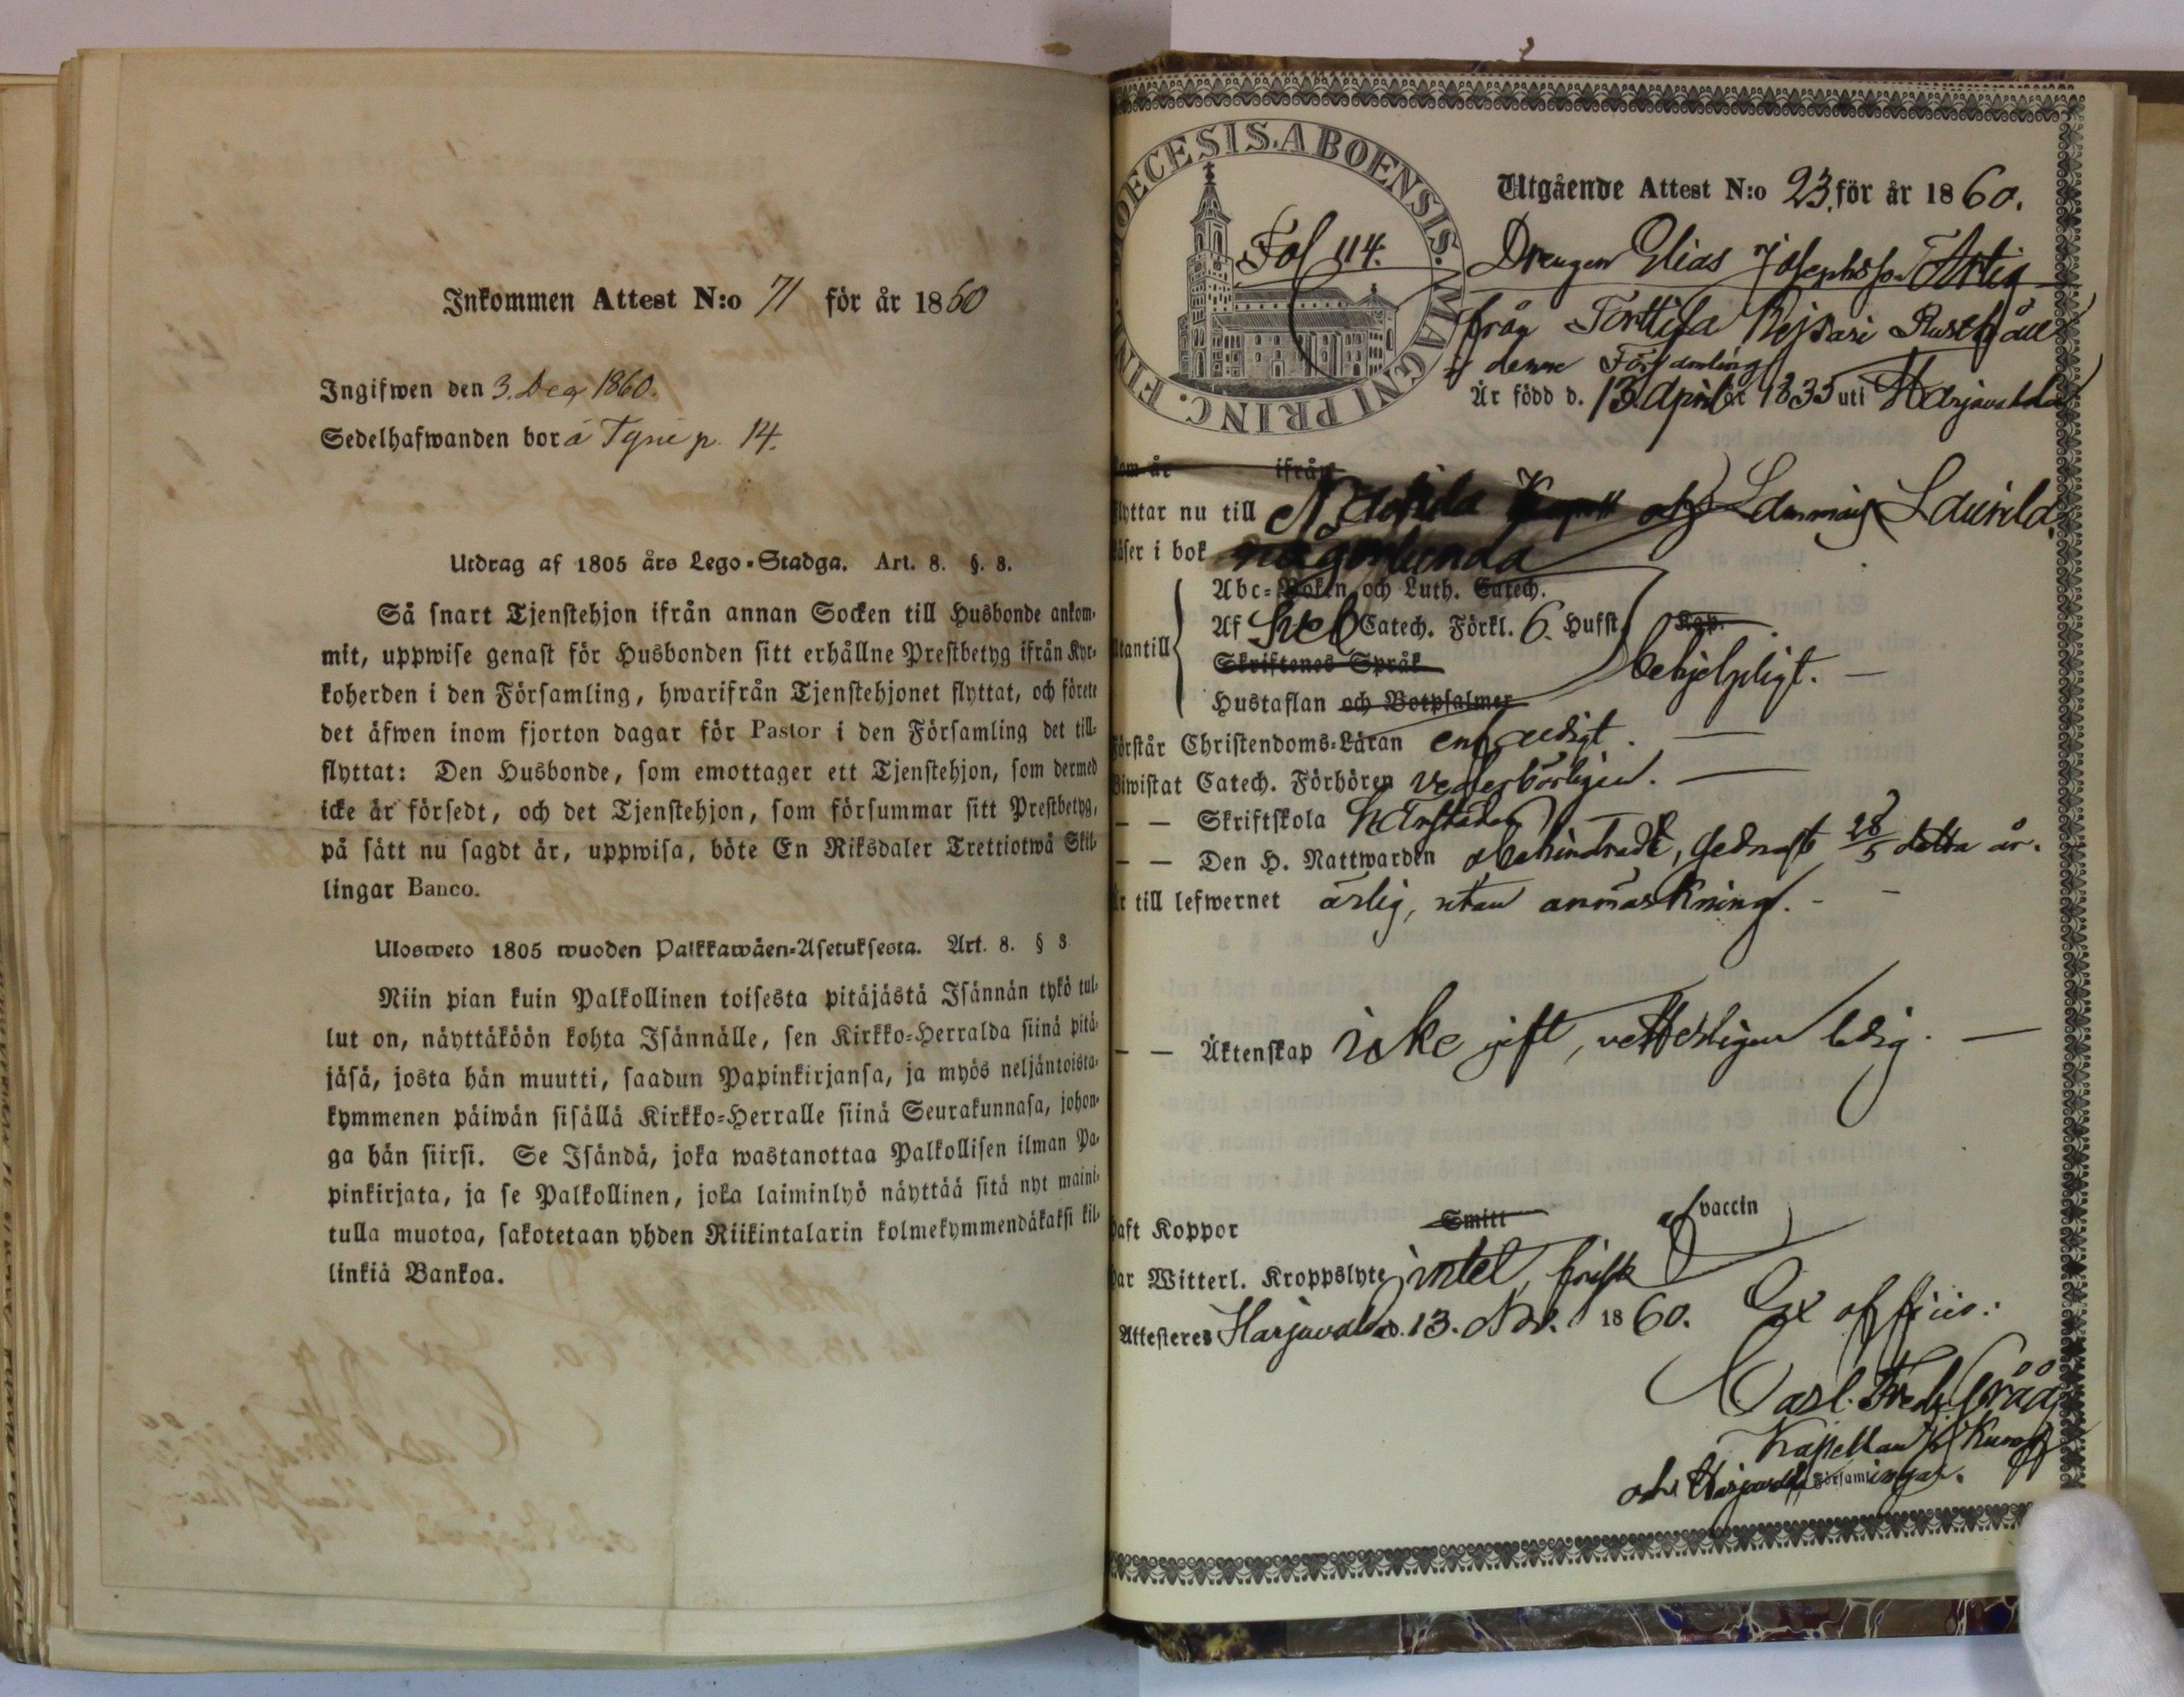 Inkommen Attest N:o 71 för år 1860
Ingifwen den 3. Dec 1860.
Sedelhafwanden bor å Tyni p. 14.
Utdrag af 1805 års Lego-Stadga. Art. 8. §. 3.
Så snart Tjenstehjon ifrån annan Socken till Husbonde ankom-
mit, uppwise genast för Husbonden sitt erhållne Prestbetyg ifrån Kyr-
koherden i den Församling, hwarifrån Tjenstehjonet flyttat, och förete
det äfwen inom fjorton dagar för Pastor i den Församling det till-
flyttat: Den Husbonde, som emottager ett Tjenstehjon, som dermed
icke är försedt, och det Tjenstehjon, som försummar sitt Prestbetyg,
på sätt nu sagdt är, uppwisa, böte En Riksdaler Trettiotwå Skil-
lingar Banco.
Ulosweto 1805 wuoden Palkkawäen-Asetuksesta. Art. 8. § 3
Niin pian kuin Palkollinen toisesta pitäjästä Isännän tykö tul-
lut on, näyttäköön kohta Isännälle, sen Kirkko-Herralda siinä pitä-
jäsä, josta hän muutti, saadun Papinkirjansa, ja myös neljäntoista-
kymmenen päiwän sisällä Kirkko-Herralle siinä Seurakunnasa, johon-
ga hän siirsi. Se Isändä, joka wastanottaa Palkollisen ilman Pa-
pinkirjata, ja se Palkollinen, joka laiminlyö näyttää sitä nyt maini-
tulla muotoa, sakotetaan yhden Riikintalarin kolmekymmendäkaksi kil-
linkiä Bankoa.
DIOECESIS. ABOENSIS. MAGNI PRINC. FINL.
Fol 114.
Utgående Attest N:o 23. för år 1860.
Drengen Elias Josephsson
från Torttila Rusthåll
i denne Församling
Är född d. 13 April år 1835 uti Harjavalda
kom år ifrån
flyttar nu till och Lammais Laurila.
läser i bok någorlunda
Abc-Boken och Luth. Catech.
Utantill Af Catech. Förkl. 6. Hufst. Kap.
Skriftenes Språk behjelpligt.
Hustaflan och Botpsalmer
Förstår Christendoms-Läran enfaldigt.
Biwistat Catech. Förhören vederbörligen.
— — Skriftskola
— — Den H. Nattwarden obehindradt, sednast 28/5 detta år.
Är till lefwernet ärlig, utan anmärkning.
— — Äktenskap icke gift, vetterligen ledig.
Haft Koppor Smitt af vaccin
Har Witterl. Kroppslyte intet, frisk
Attesteres Harjavalda d. 13. Nov. 1860. Ex officio:
Carl Fredr. Gråå
Kapellan i Kumo
och Harjavalda Församlingar.